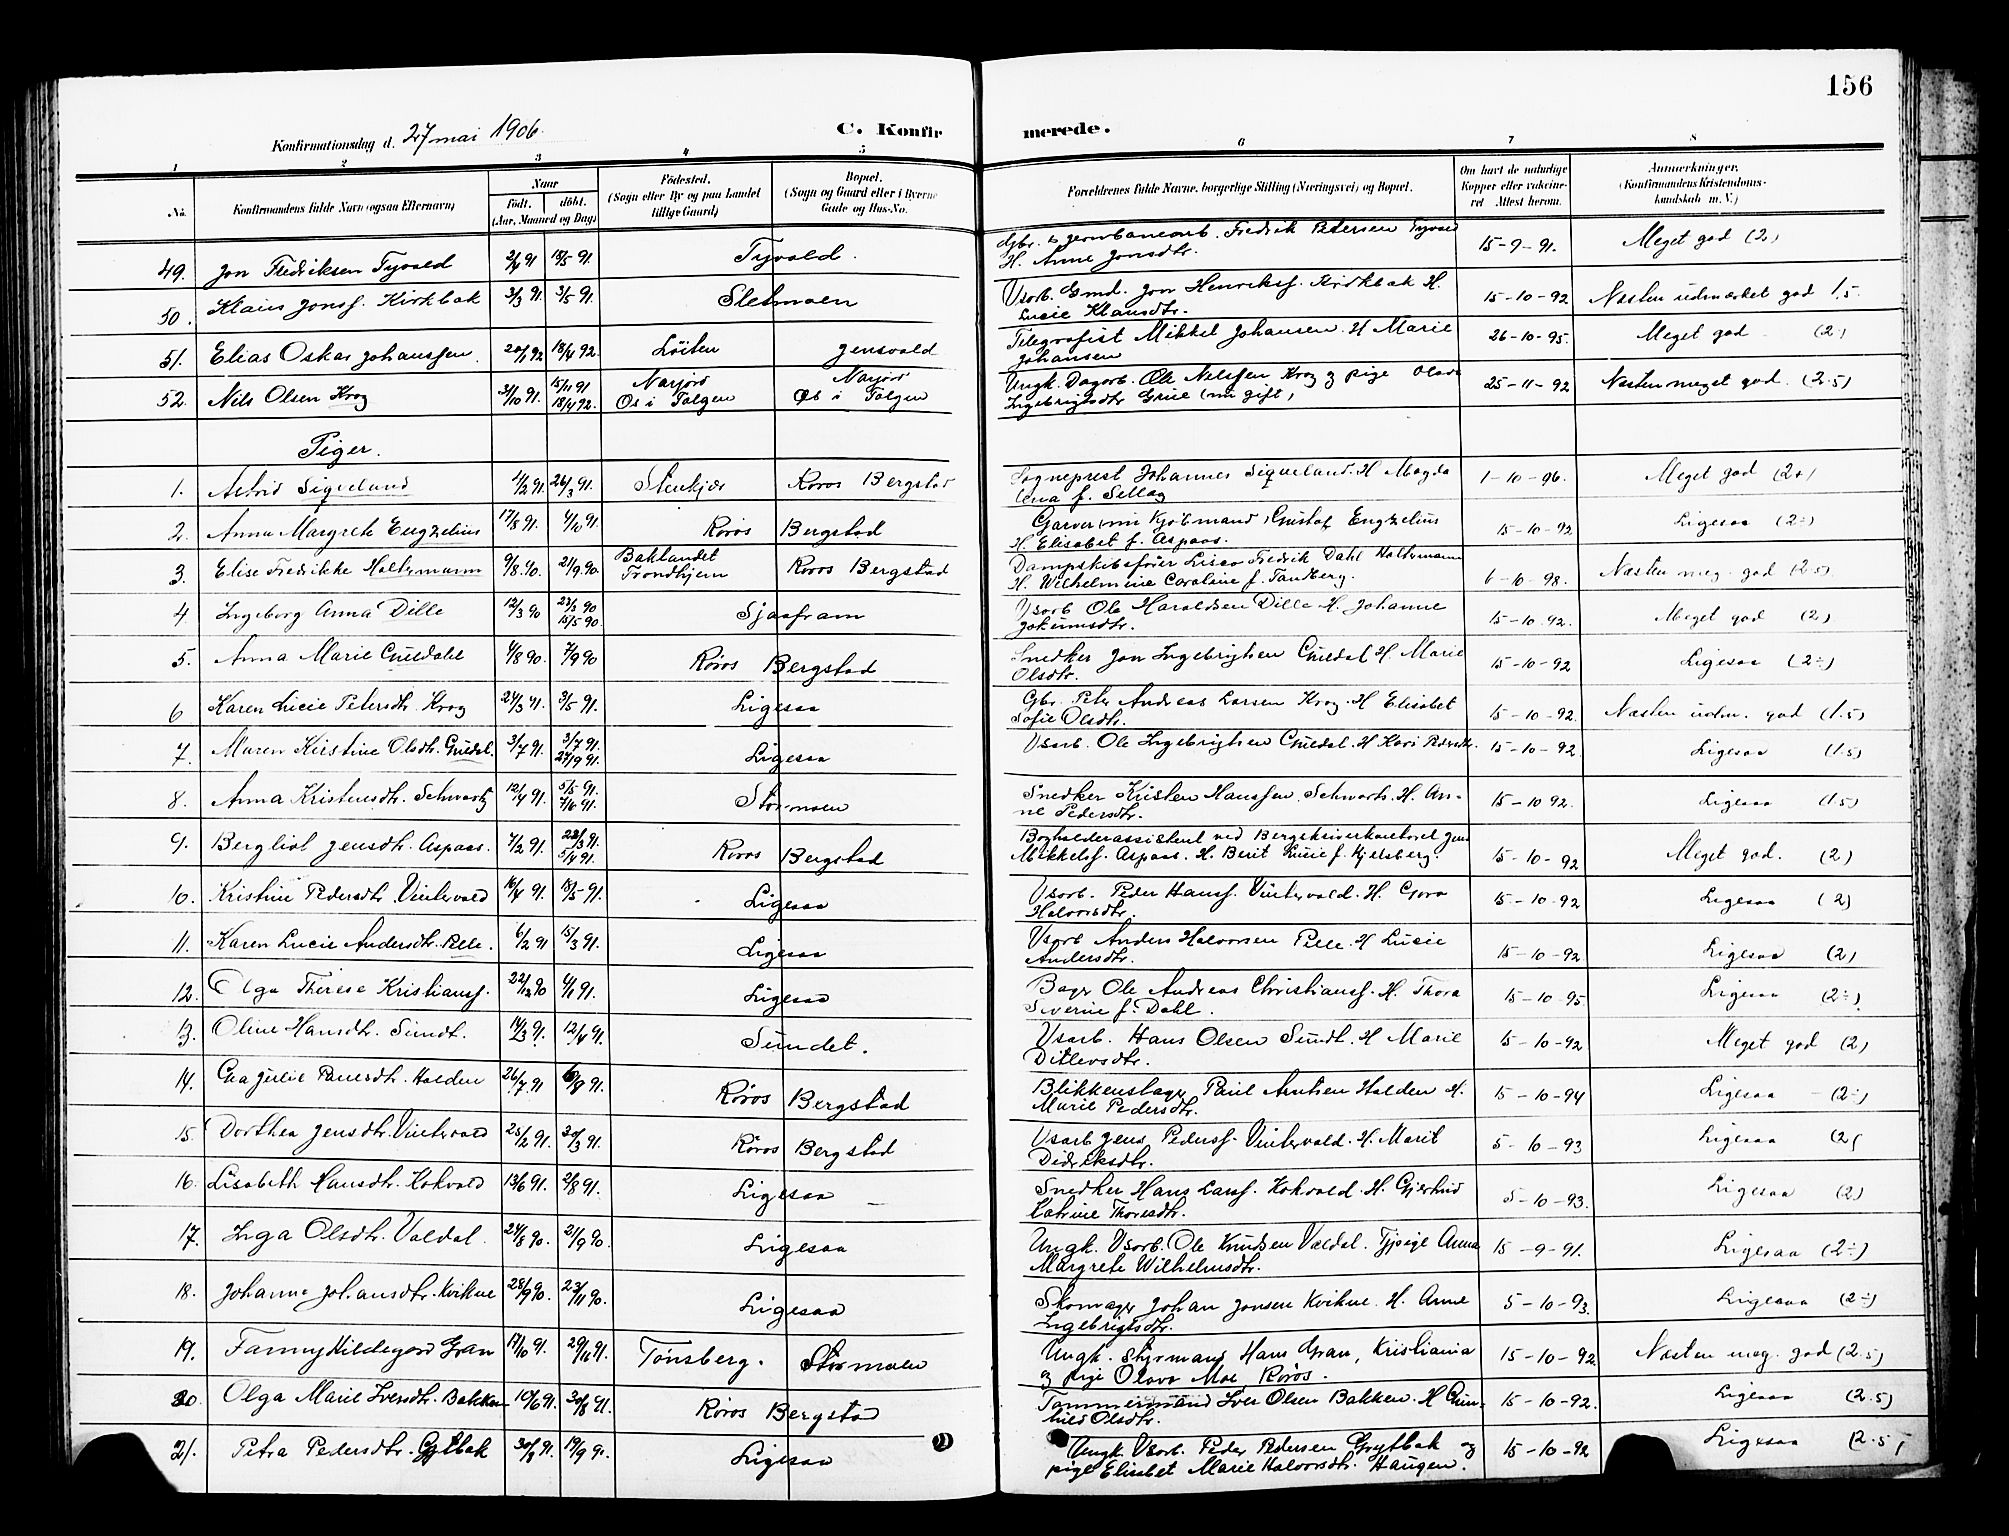 156
Konfirmationsdag d. 27 mai 1906. C. Konfirmerede.
1 2 3 4 5 6 7 8
No. Konfirmandens fulde Navn (ogsaa Efternavn) Naar Født. døbt. (Aar, Maaned og Dag) Fødested. (Sogn eller By og paa Landet tillige Gaard) Bopæl. (Sogn og Gaard eller i Byerne Gade og Hus-No. Forældrenes fulde Navne, borgerlige Stilling (Næringsvei) og Bopæl. Om havt de naturlige Kopper eller vaccineret Attest herom. Anmærkninger. (Konfirmandens Kristendomskundskab m. V.)
49. Jon Fredriksen Tyvold 18/5 91. Tyvold. Fredrik Pedersen Tyvold
H. Anne Jonsdtr. 15-9-91. Meget god (2)
50. Klaus Jonsf. Kirkbak 3/3 91. 3/5 91. Sletmoen Vsarb. Gmd. Jon Henriksf. Kirkbak H.
Lucie Klausdtr. 15-10-92 Næsten udmærket god 1.5.
51. Elias Oskar Johanssen. 20/1 92 18/4 92. Løiten Jensvold Telegrafist Mikkel Johansen. H Marie
Johansen 26-10-95. Meget god (2)
52. Nils Olsen Krog 31/10 91. 15/11 91 18/4 92. Narjord Os i Tolgen Narjord Os i Tolgen Ungk. Dagarb. Ole Nilssen Krog og pige Olava
Ingebrigtsdtr Grue (nu gift) 25-11-92 Næsten meget god. (2.5)
Piger.
1. Astrid Sigveland 1/2 91. 26/3 91. Stenkjær Røros Bergstad Sogneprest Johannes Sigveland. H Magdalena f. Sellæg 1-10-96. Meget god (2+)
2. Anna Margrete Engzelius 17/8 91. 4/10 91. Røros Bergstad Garver (nu Kjøbmand) Gustaf Engzelius
H. Elisabet f. Aspaas. 15-10-92 Ligesaa (2÷)
3. Elise Fredrikke Holtermann 9/8 90. 21/9 90. Baklandet Trondhjem Røros Bergstad Dampskibsfører Lisco Fredrik Dahl Holtermann
H. Wilhelmine Caroline f. Tandberg. 6-10-98. Næsten meg. god (2.5)
4. Ingeborg Anna Dille 12/3 90 23/3 90 15/5 90 Sjaafram Vsarb Ole Haraldsen Dille H. Johanne
Jokumsdtr. 15-10-92. Meget god (2)
5. Anna Marie Guldahl 4/8 90. 7/9 90 Røros Bergstad Snedker Jon Ingebrigtsen Guldal H. Marie
Olsdtr. 15-10-92 Ligesaa (2÷)
6 Karen Lucie Petersdtr. Krog 24/3 91. 3/5 91. Ligesaa Gbr. Peter Andreas Larsen Krog. H Elisabet
Sofie Olsdtr. 15-10-92. Næsten udm. god (1.5)
7. Maren Kirstine Olsdtr. Guldal. 3/7 91. 3/7 91. 27/9 91. Ligesaa Vsarb. Ole Ingebrigtsen Guldal. H Kari Pedersdtr. 15-10-92 Ligesaa (1.5)
8. Anna Kristensdtr. Schwartz 12/4 91. 5/5 91. 7/6 91. Stormoen Snedker Kristen Hanssen Schwarts. H. Anne Pedersdtr. 15-10 92. Ligesaa (1.5)
9. Bergliot Jensdtr. Aspaas. 7/2 91. 22/3 91. 5/4 91. Røros Bergstad Bogholderassistent ved Bergskriverkontoret Jens
Mikkelsf. Aspaas. H. Berit Lucie f. Kjelsberg. 15-10-92 Meget god. (2)
10. Kristine Pedersdtr. Vintervold 16/4 91. 18/5 91. Ligesaa Vsarb. Peder Hansf. Vintervold. H. Goro
Halvorsdtr. 15-10-92 Ligesaa (2)
11. Karen Lucie Andersdtr. Pelle. 6/2 91 15/3 91. Ligesaa Vsarb Anders Halvorsen Pelle. H Lucie
Andersdtr. 15-10-92 Ligesaa (2)
12. Olga Therese Kristiansf. 22/12 90 4/1 91. Ligesaa Bager Ole Andreas Christiansf. H. Thora
Severine f. Dahl. 15-10-95 Ligesaa (2÷)
13. Oline Hansdtr. Sundt. 14/3 91. 12/4 91. Sundet. Vsarb. Hans Olsen Sundt. H Marie
Ditlevsdtr. 15-10-92 Meget god (2)
14. Eva Julie Paulsdtr. Holden 26/7 91 6/9 91. Røros Bergstad Blikkenslager Paul Arntsen Holden H.
Marie Pedersdtr. 15-10-94 Ligesaa (2÷)
15. Dorthea Jensdtr. Vintervold 25/2 91. 30/3 91. Røros Bergstad Vsarb Jens Pedersf. Vintervold. H. Marit
Didriksdtr. 5-10-93 Ligesaa (2)
16. Lisabeth Hansdtr. Kokvold 13/6 91. 2/8 91. Ligesaa Snedker Hans Larsf. Kokvold. H. Gjertrud
Catrine Thoresdtr. 5-10-93. Ligesaa (2)
17. Inga Olsdtr. Valdal. 24/8 90. 21/9 90. Ligesaa Ungk. Vsarb. Ole Knudsen Valdal. Tjpige Anna
Margrete Wilhelmsdtr. 15-9-91. Ligesaa (2÷)
18. Johanne Johansdtr. Kvikne 28/9 90. 23/11 90. Ligesaa Skomager Johan Jonsen Kvikne. H. Anne
Ingebrigtsdtr. 5-10-93. Ligesaa (2÷)
19. Fanny Hildegard Gran 17/10 91. 29/11 91. Tønsberg. Stormoen Ungk. Styrmand Hans Gran, Kristiania
og pige Olava Moe Røros. 15-10-92. Næsten meg. god (2.5)
20. Olga Marie Iversdtr. Bakken 10/6 91. 30/8 91. Røros Bergstad Tømmermand Iver Olsen Bakken. H Gunhild Olsdtr. 15-10-92. Ligesaa (2.5)
21. Petra Pedersdtr. Grytbak 30/8 91. 19/9 91. Ligesaa Ungk. Vsarb. Peder Pedersen Grytbak og
pige Elisabet Marie Halvorsdtr. Haugen. 15-10-92 Ligesaa (2.5)